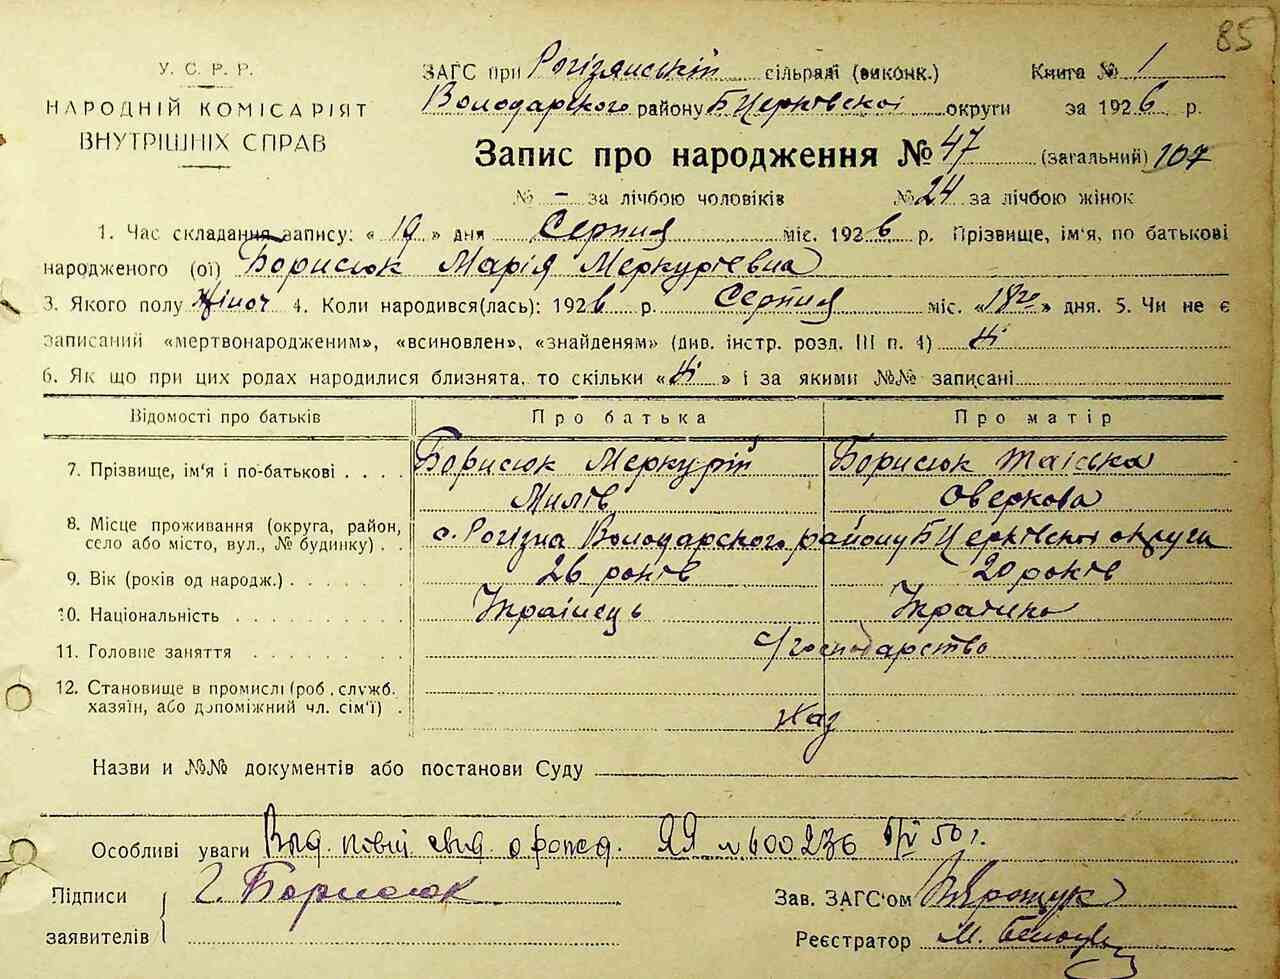 85
У. С. Р. Р.
НАРОДНІЙ КОМІСАРІЯТ
ВНУТРІШНІХ СПРАВ
ЗАГС при Рогізянській сільраді (виконк.) Книга № 1
Володарського району БЦерковської округи за 1926 р.
Запис про народження № 47 (загальний) 107
№ – за лічбою чоловіків № 24 за лічбою жінок
1. Час складання запису: « 19 » дня Серпня міс. 1926 р. Прізвище, ім'я, по батькові
народженого (ої) Борисюк Марія Меркуріевна
3. Якого полу жіноч 4. Коли народився(лась): 1926 р. Серпня міс. «18го» дня. 5. Чи не є
записаний «мертвонародженим», «всиновлен», «знайденям» (див. інстр. розд. III п. 4) Ні
6. Як що при цих родах народилися близнята, то скільки « Ні » і за якими №№ записані
Відомості про батьків Про батька Про матір
7. Прізвище, ім'я і по-батькові . . . . Борисюк Меркурій Борисюк Таіська
Милів Оверкова
8. Місце проживання (округа, район,
село або місто, вул., № будинку) . . с. Рогізна Володарского району БЦерківскоі округи
9. Вік (років од народж.) . . . . . . 26 років 20 років
10. Національність . . . . . . . . Украінець Украінка
11. Головне заняття . . . . . . . . с/господарство
12. Становище в промислі (роб., служб.
хазяїн, або допоміжний чл. сім'ї) . Хаз
Назви и №№ документів або постанови Суду
Особливі уваги Выд. повій свид. о рожд. ЯЯ № 600236 50 г.
Підписи
заявителів
Г. Борисюк
Зав. ЗАГС'ом
Реєстратор М.